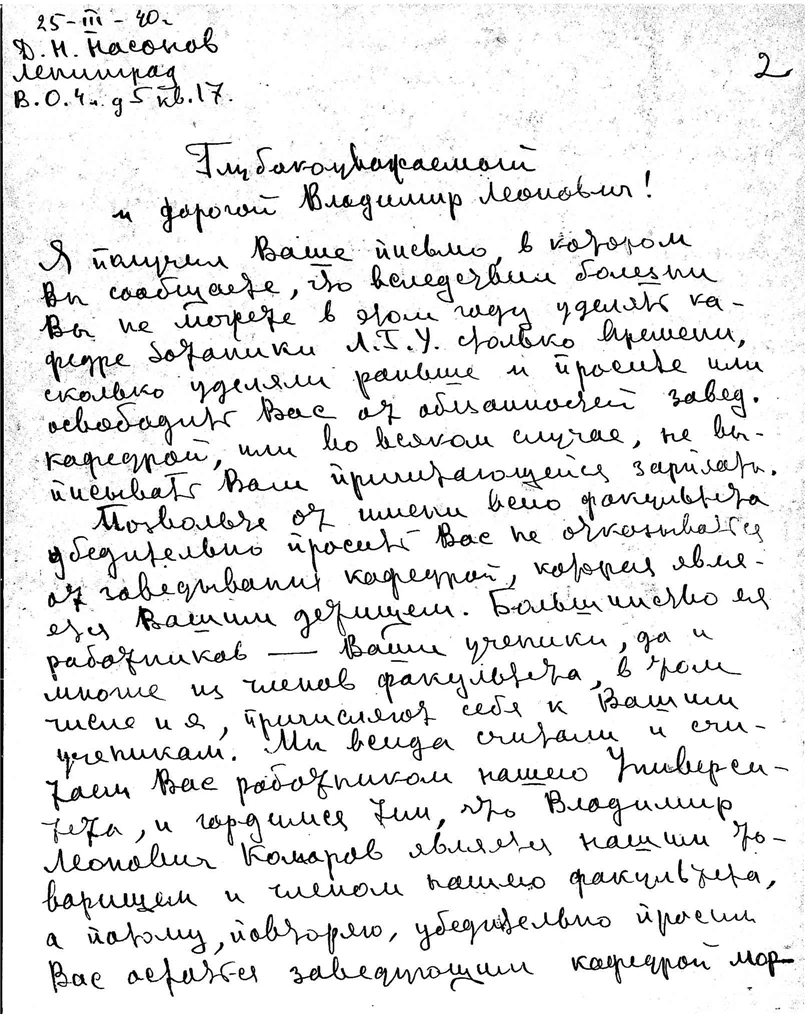 25-III-40 г.
Д. Н. Насонов
Ленинград
В. О. 4 л. д 5 кв. 17.
2
Глубокоуважаемый
и дорогой Владимир Леонович!
Я получил Ваше письмо, в котором
Вы сообщаете, что вследствии болезни
Вы не можете в этом году уделять ка-
федре ботаники Л.Г.У. столько времени,
сколько уделяли раньше и просите или
освободить Вас от обязанностей завед.
кафедрой, или во всяком случае, не вы-
писывать Вам причитающейся зарплаты.
Позвольте от имени всего факультета
убедительно просить Вас не отказываться
от заведывания кафедрой, которая явля-
ется Вашим детищем. Большинство ея
работников — Ваши ученики, да и
многие из членов факультета, в том
числе и я, причисляют себя к Вашим
ученикам. Мы всегда считали и счи-
таем Вас работником нашего Универси-
тета, и гордимся тем, что Владимир
Леонович Комаров является нашим то-
варищем и членом нашего факультета,
а потому, повторяю, убедительно просим
Вас остаться заведующим кафедрой мор-